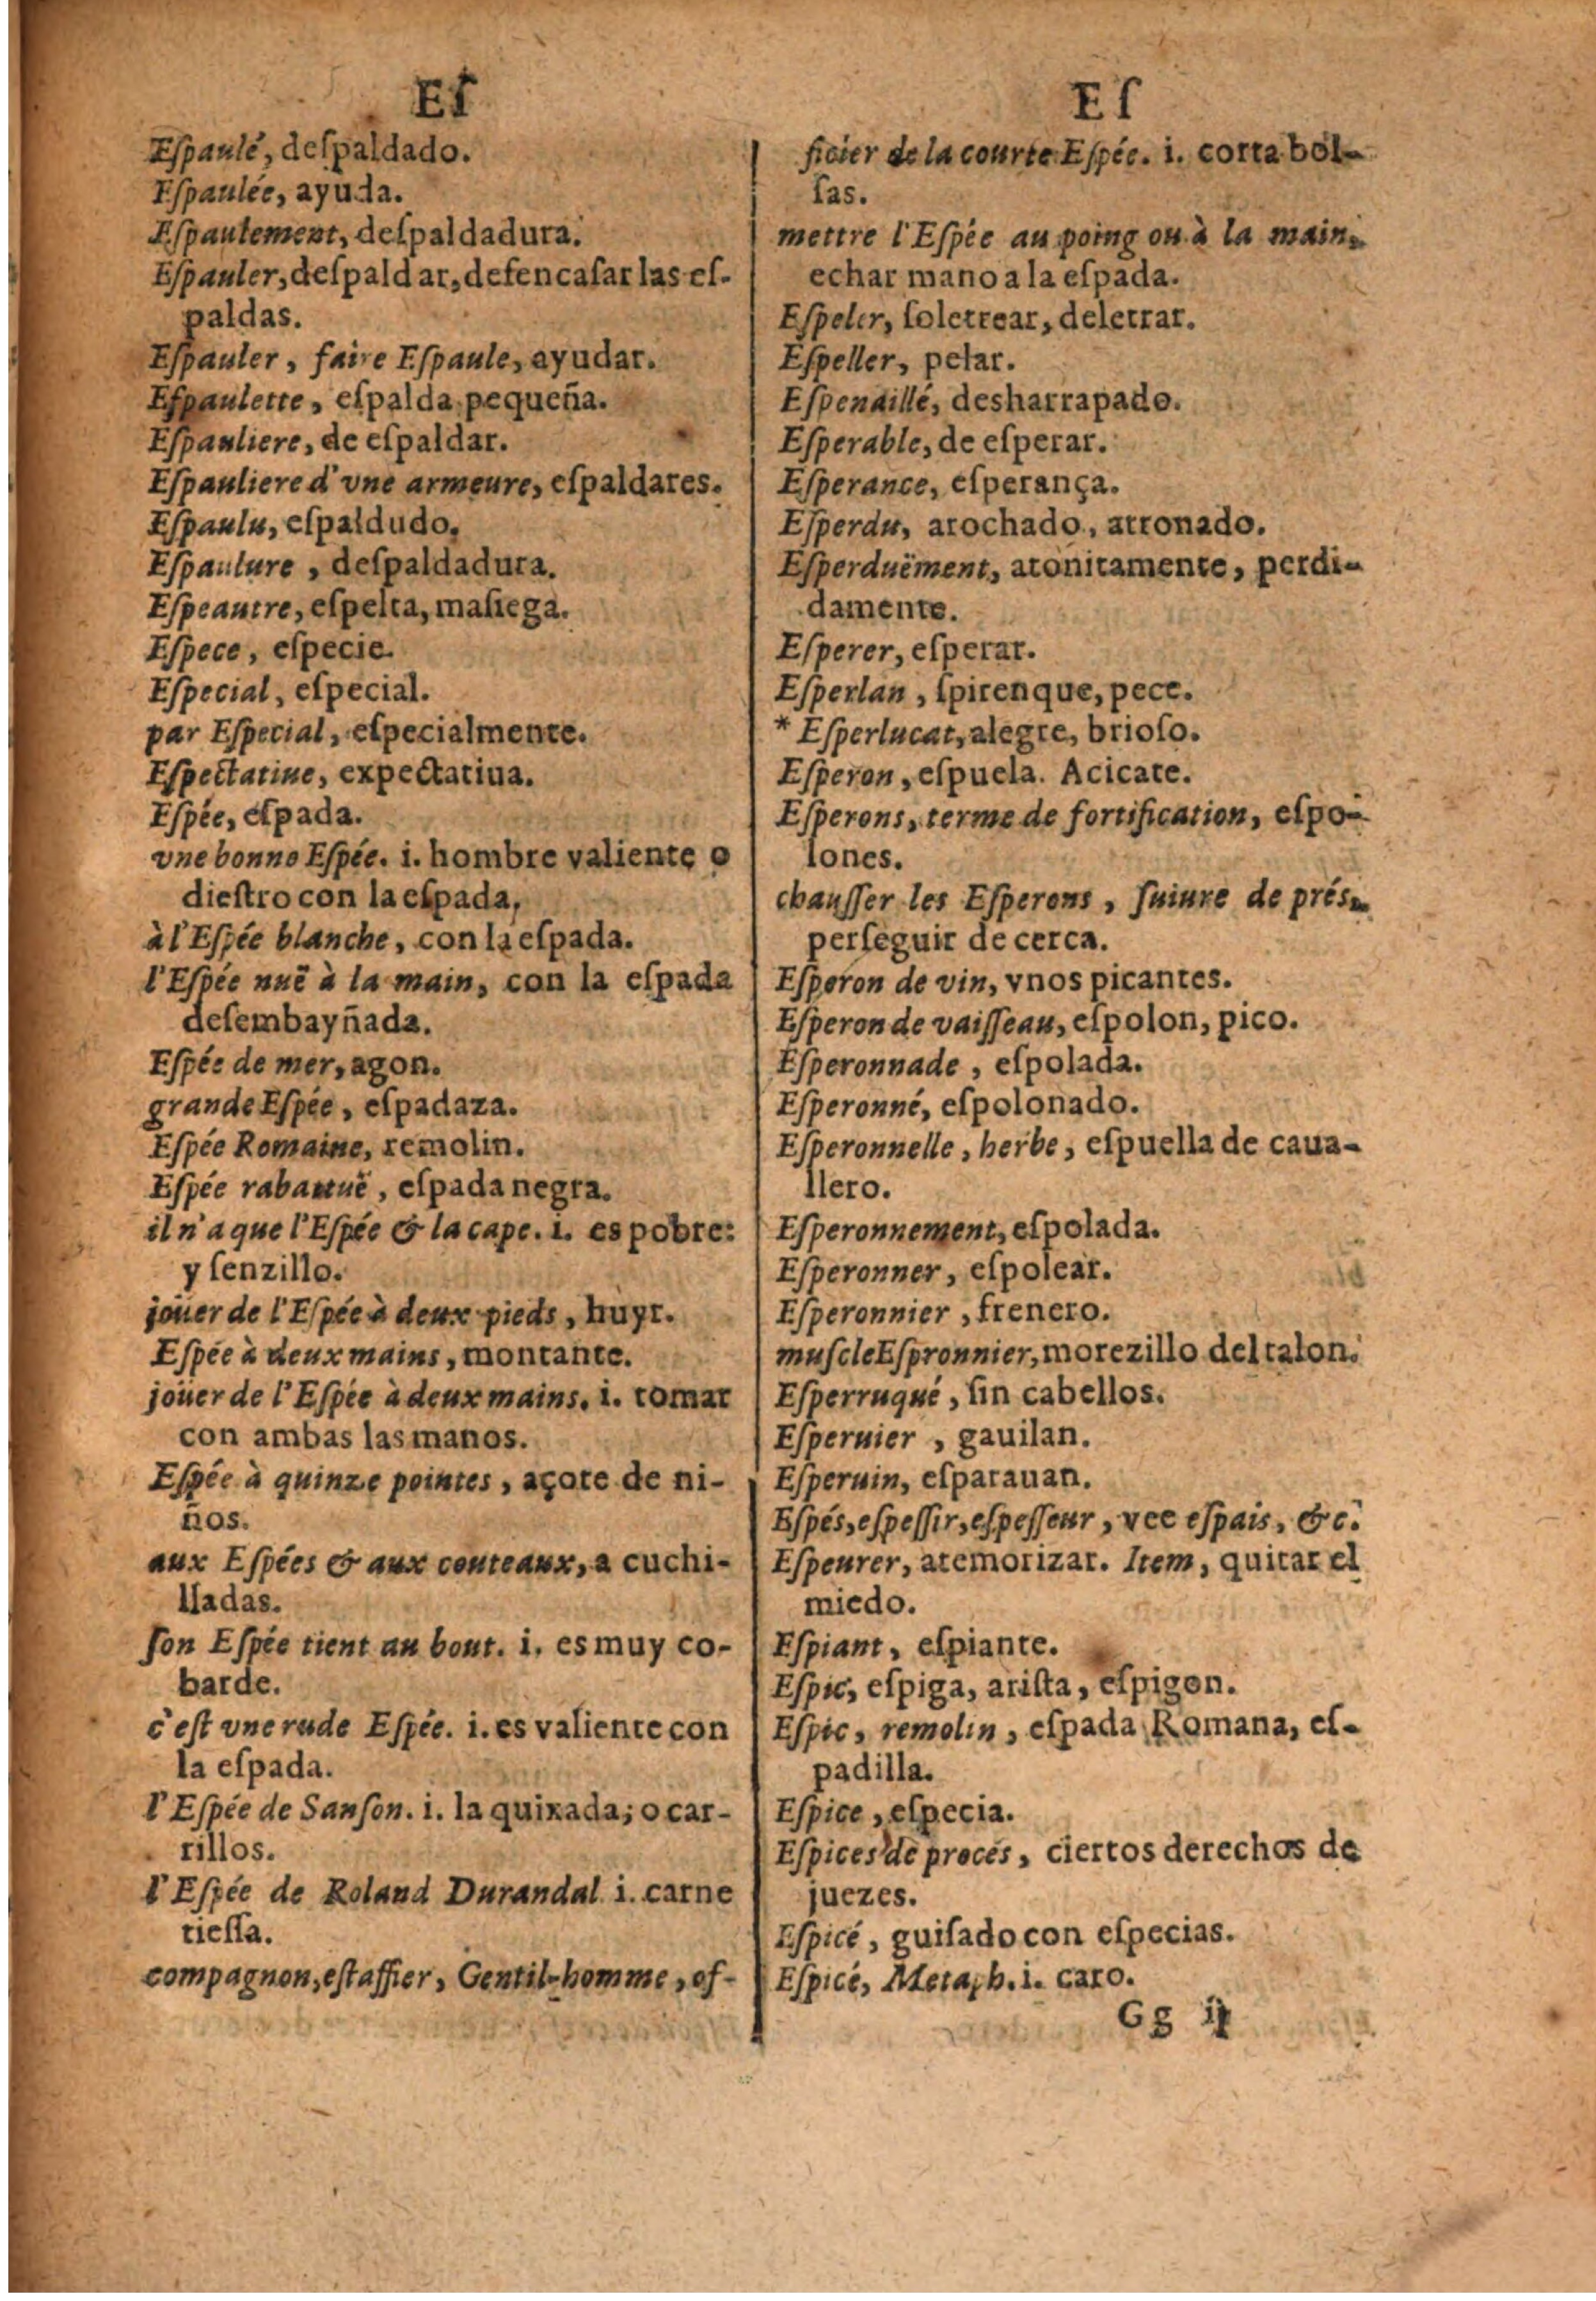 Eſ
Eſpaulé, deſpaldado.
Eſpaulée, ayuda.
Eſpaulement, deſpaldadura.
Eſpauler, deſpaldar, deſencaſar las eſ-
paldas.
Eſpauler, faire Eſpaule, ayudar.
Eſpaulette, eſpalda pequeña.
Eſpauliere, de eſpaldar.
Eſpauliere d'vne armeure, eſpaldares.
Eſpaulu, eſpaldudo.
Eſpaulure, deſpaldadura.
Eſpeautre, eſpelta, maſiega.
Eſpece, eſpecie.
Eſpecial, eſpecial.
par Eſpecial, eſpecialmente.
Eſpectatiue, expectatiua.
Eſpée, eſpada.
vne bonne Eſpée. i. hombre valiente o
dieſtro con la eſpada,
à l'Eſpée blanche, con la eſpada.
l'Eſpée nuë à la main, con la eſpada
deſembayñada.
Eſpée de mer, agon.
grande Eſpée, eſpadaza.
Eſpée Romaine, remolin.
Eſpée rabattuë, eſpada negra.
il n'a que l'Eſpée & la cape. i. es pobre:
y ſenzillo.
joüer de l'Eſpée à deux pieds, huyr.
Eſpée à deux mains, montante.
joüer de l'Eſpée à deux mains. i. tomar
con ambas las manos.
Eſpée à quinze pointes, açote de ni-
ños.
aux Eſpées & aux couteaux, a cuchi-
lladas.
ſon Eſpée tient au bout. i. es muy co-
barde.
c'eſt vne rude Eſpée. i. es valiente con
la eſpada.
l'Eſpée de Sanſon. i. la quixada; o car-
rillos.
l'Eſpée de Roland Durandal i. carne
tieſſa.
compagnon, eſtaffier, Gentil-homme, of-
Eſ
ficier de la courte Eſpée. i. corta bol-
ſas.
mettre l'Eſpée au poing ou à la main,
echar mano a la eſpada.
Eſpeler, ſoletrear, deletrar.
Eſpeller, pelar.
Eſpenaillé, desharrapado.
Eſperable, de eſperar.
Eſperance, eſperança.
Eſperdu, atochado, atronado.
Eſperduëment, atonitamente, perdi-
damente.
Eſperer, eſperar.
Eſperlan, ſpirenque, pece.
* Eſperlucat, alegre, brioſo.
Eſperon, eſpuela. Acicate.
Eſperons, terme de fortification, eſpo-
lones.
chauſſer les Eſperons, ſuiure de prés,
perſeguir de cerca.
Eſperon de vin, vnos picantes.
Eſperon de vaiſſeau, eſpolon, pico.
Eſperonnade, eſpolada.
Eſperonné, eſpolonado.
Eſperonnelle, herbe, eſpuella de caua-
llero.
Eſperonnement, eſpolada.
Eſperonner, eſpolear.
Eſperonnier, frenero.
muſcle Eſpronnier, morezillo del talon.
Eſperruqué, ſin cabellos.
Eſperuier, gauilan.
Eſperuin, eſparauan.
Eſpés, eſpeſſir, eſpeſſeur, vee eſpais, &c.
Eſpeurer, atemorizar. Item, quitar el
miedo.
Eſpiant, eſpiante.
Eſpic, eſpiga, ariſta, eſpigon.
Eſpic, remolin, eſpada Romana, eſ-
padilla.
Eſpice, eſpecia.
Eſpices de procés, ciertos derechos de
juezes.
Eſpicé, guiſado con eſpecias.
Eſpicé, Metaph. i. caro.
Gg ij